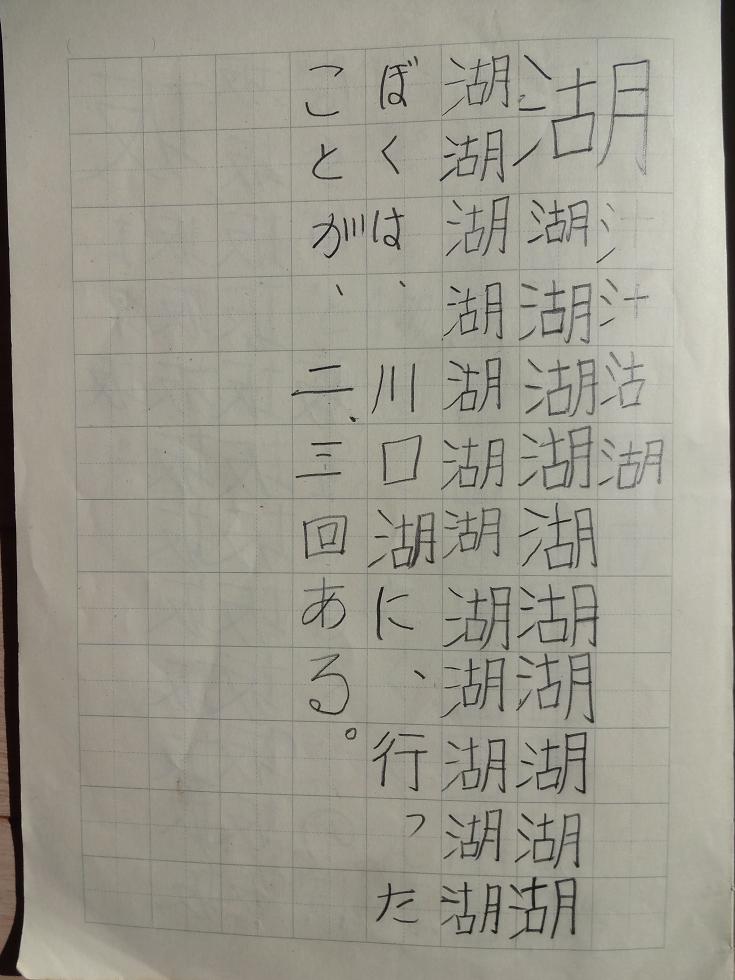 湖
汁汁沽湖
湖湖湖湖湖湖湖湖湖湖
湖湖湖湖湖湖湖湖湖湖湖湖
ぼくは、川口湖に、行った
ことが、二三回ある。